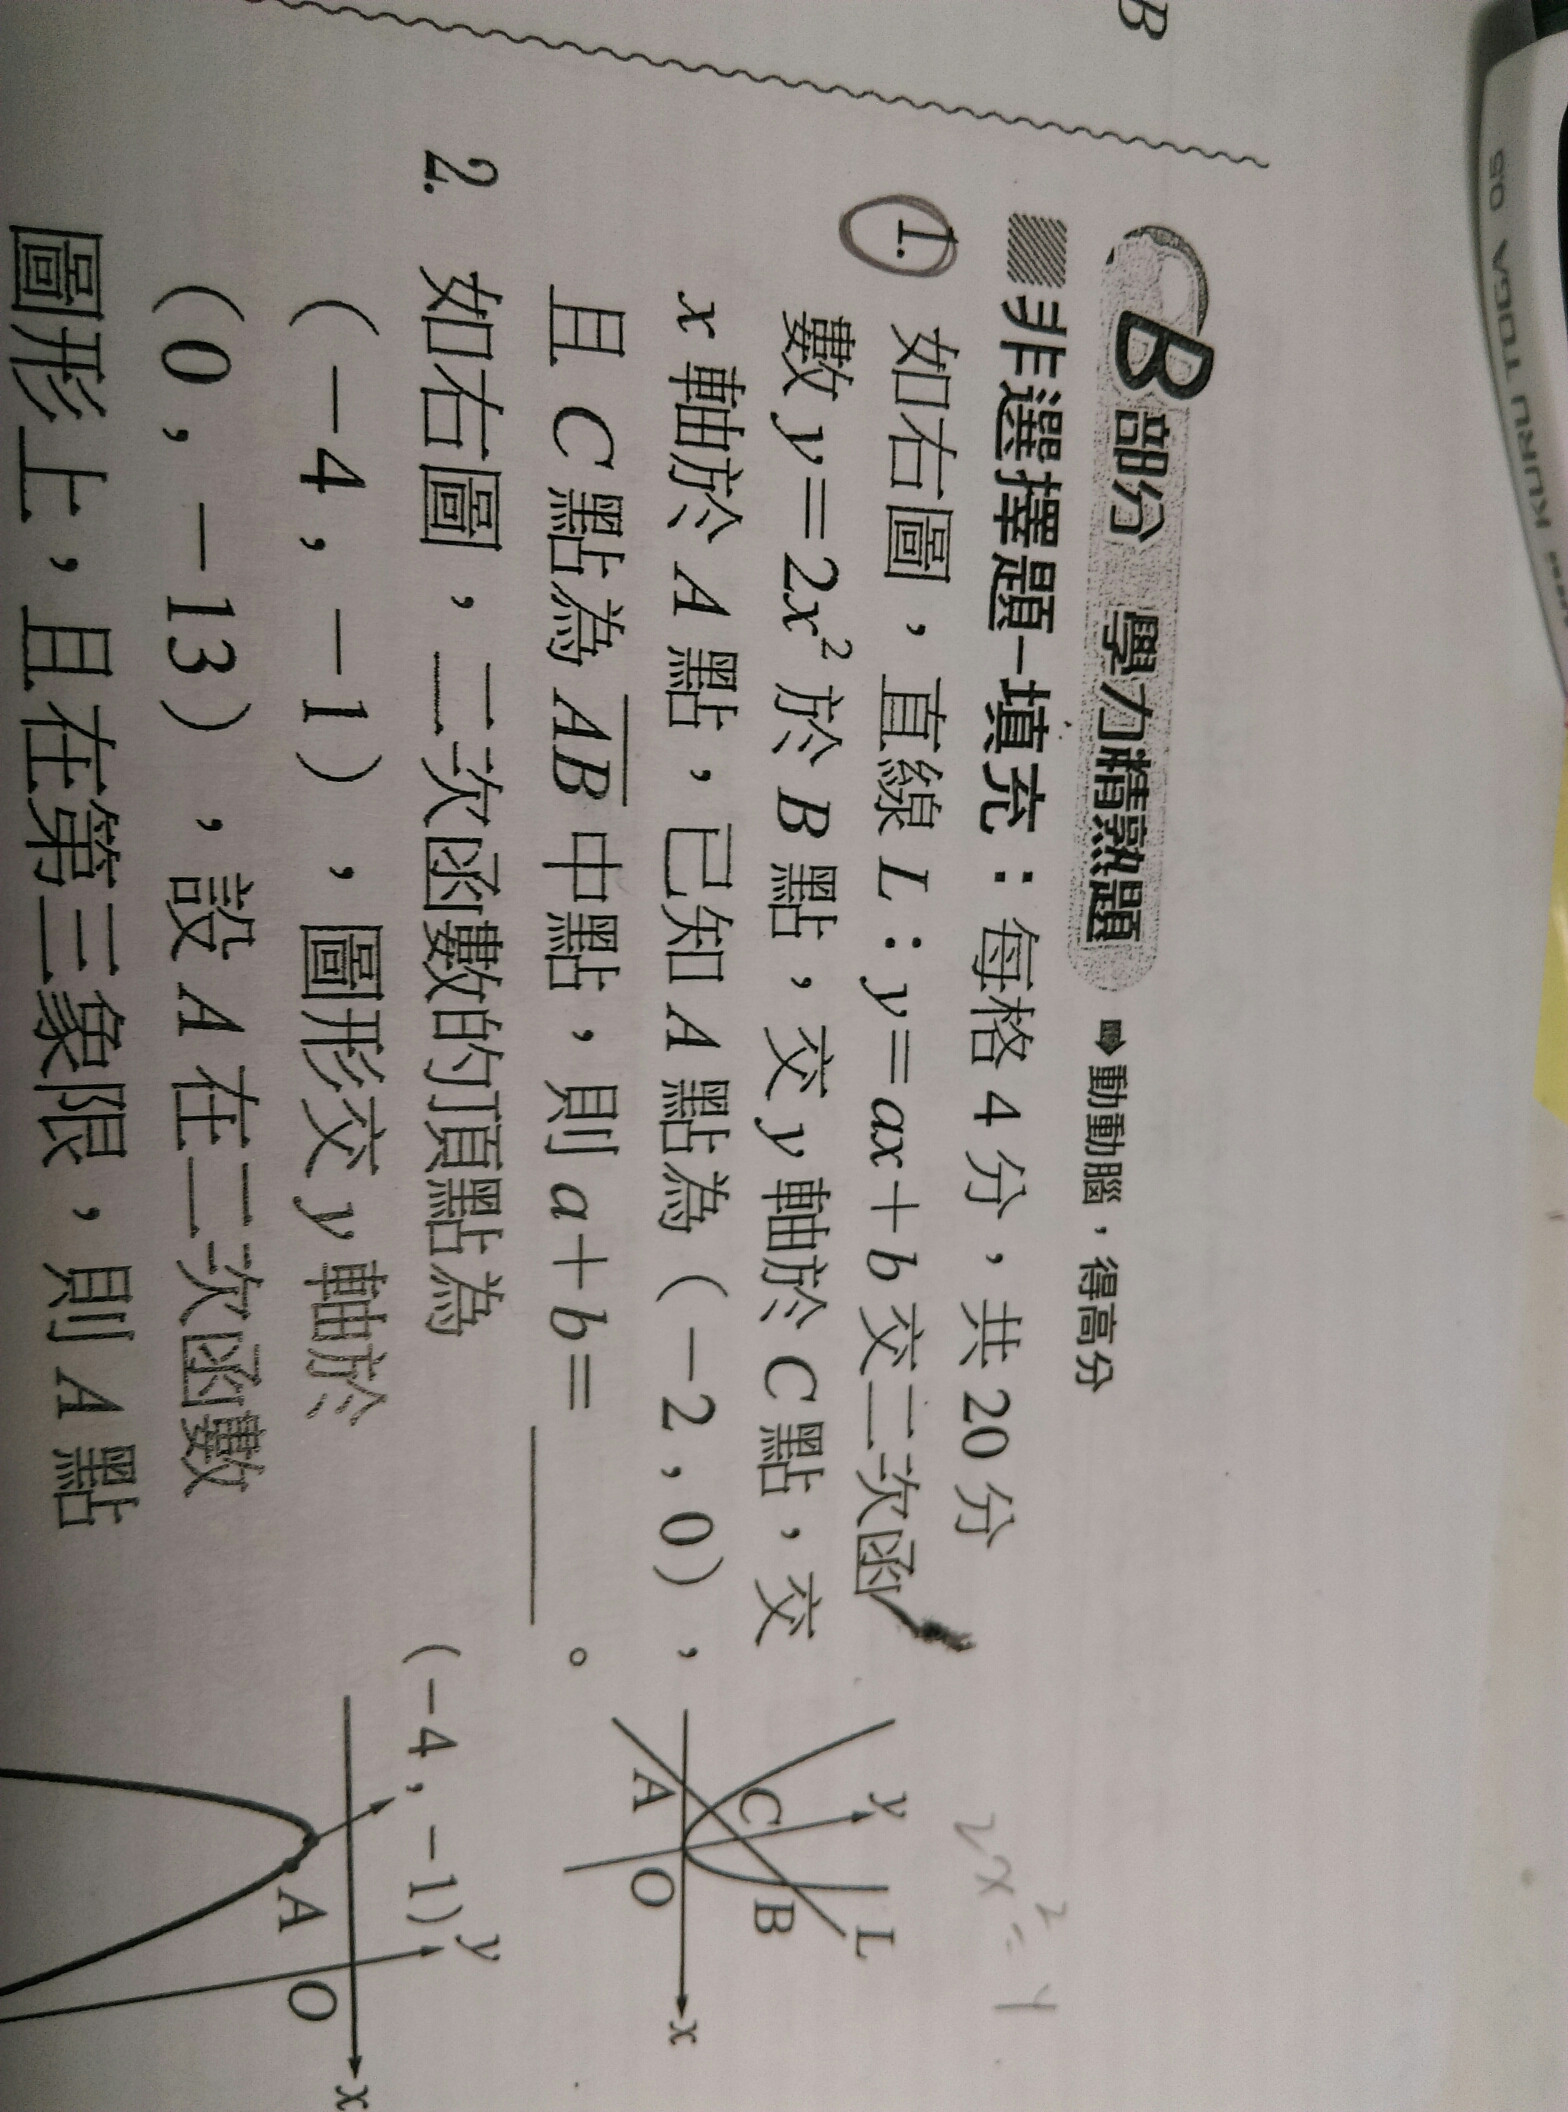 B
B部分 學力精熟題 ➠動動腦，得高分
非選擇題－填充：每格 4 分，共 20 分
1. 如右圖，直線 L：y＝ax＋b 交二次函
數 y＝2x² 於 B 點，交 y 軸於 C 點，交
x 軸於 A 點，已知 A 點為（－2，0），
且 C 點為 AB 中點，則 a＋b＝＿＿＿。
2. 如右圖，二次函數的頂點為
（－4，－1），圖形交 y 軸於
（0，－13），設 A 在二次函數
圖形上，且在第三象限，則 A 點
y
L
C
B
A
O
x
(－4，－1)
y
A
O
x
KURU TOGA 0.5